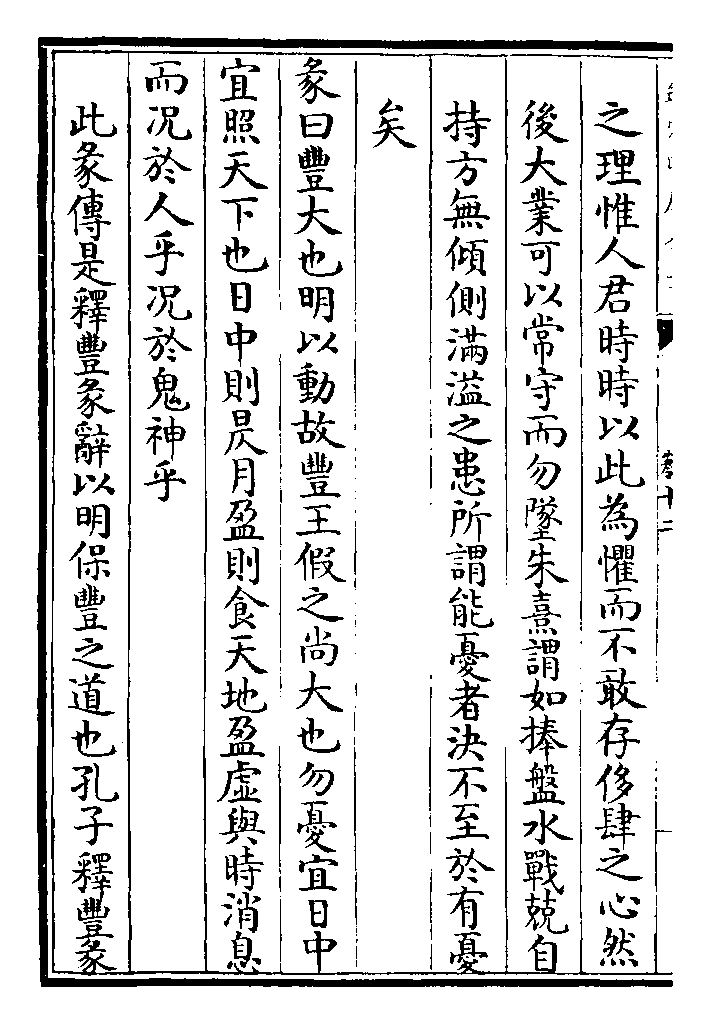 之理惟人君時時以此為懼而不敢存侈肆之心然
後大業可以常守而勿墜朱熹謂如捧盤水戰兢自
持方無傾側滿溢之患所謂能憂者決不至於有憂
矣
彖曰豐大也明以動故豐王假之尚大也勿憂宜日中
宜照天下也日中則昃月盈則食天地盈虛與時消息
而况於人乎况於鬼神乎
此彖傳是釋豐彖辭以明保豐之道也孔子釋豐彖